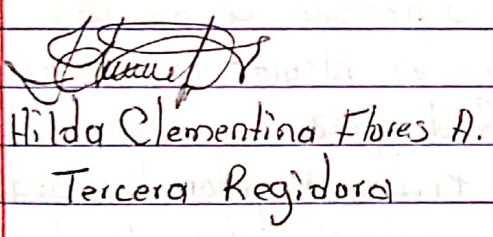 Hilda Clementina Flores A.
Tercera Regidora